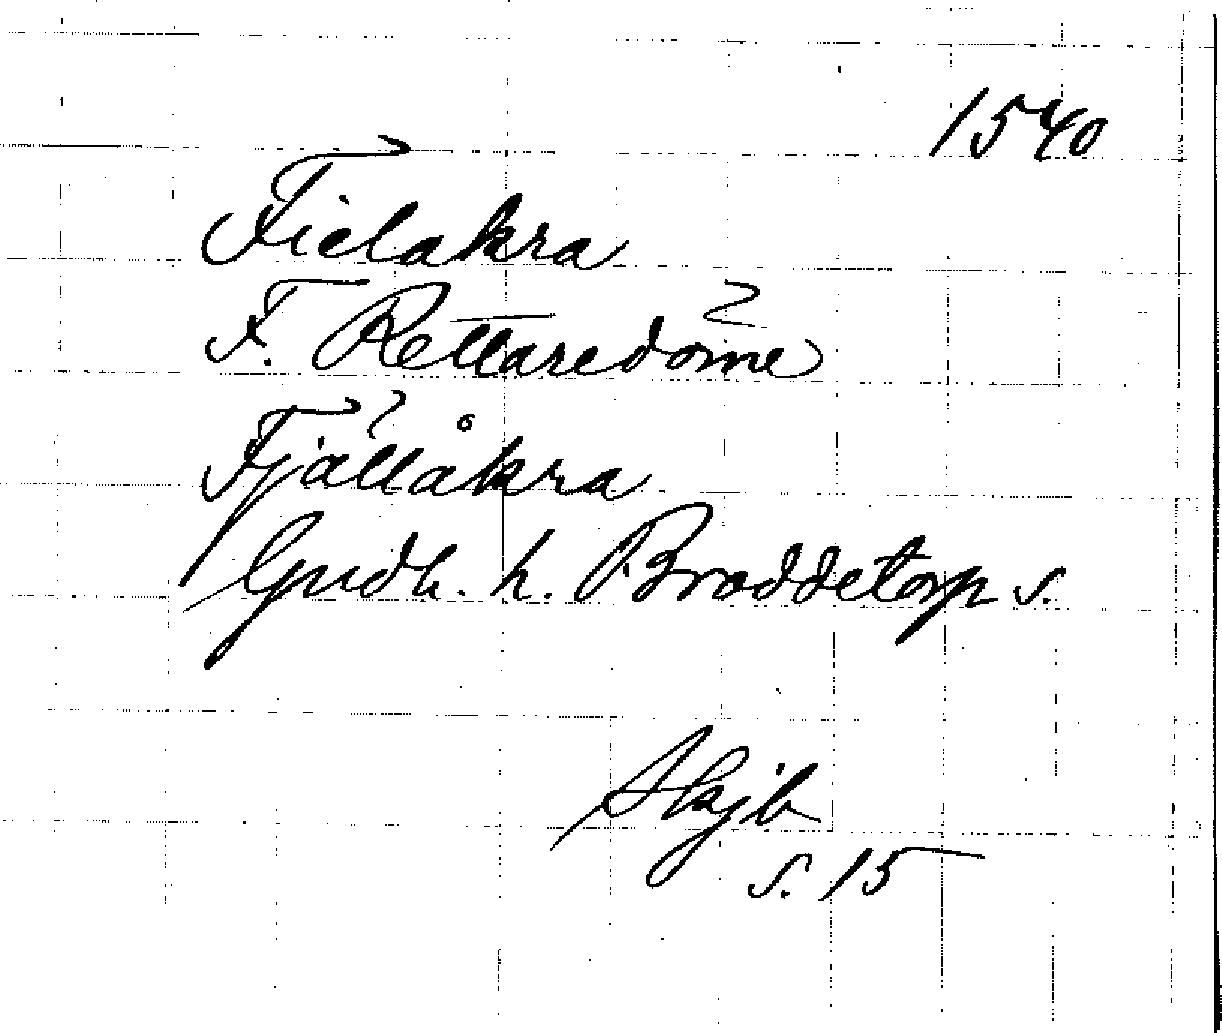 1540
Fielakra
F. Rettaredöme
Fjällåkra
Gudh. h. Broddetorp s.
Skjb
s. 15